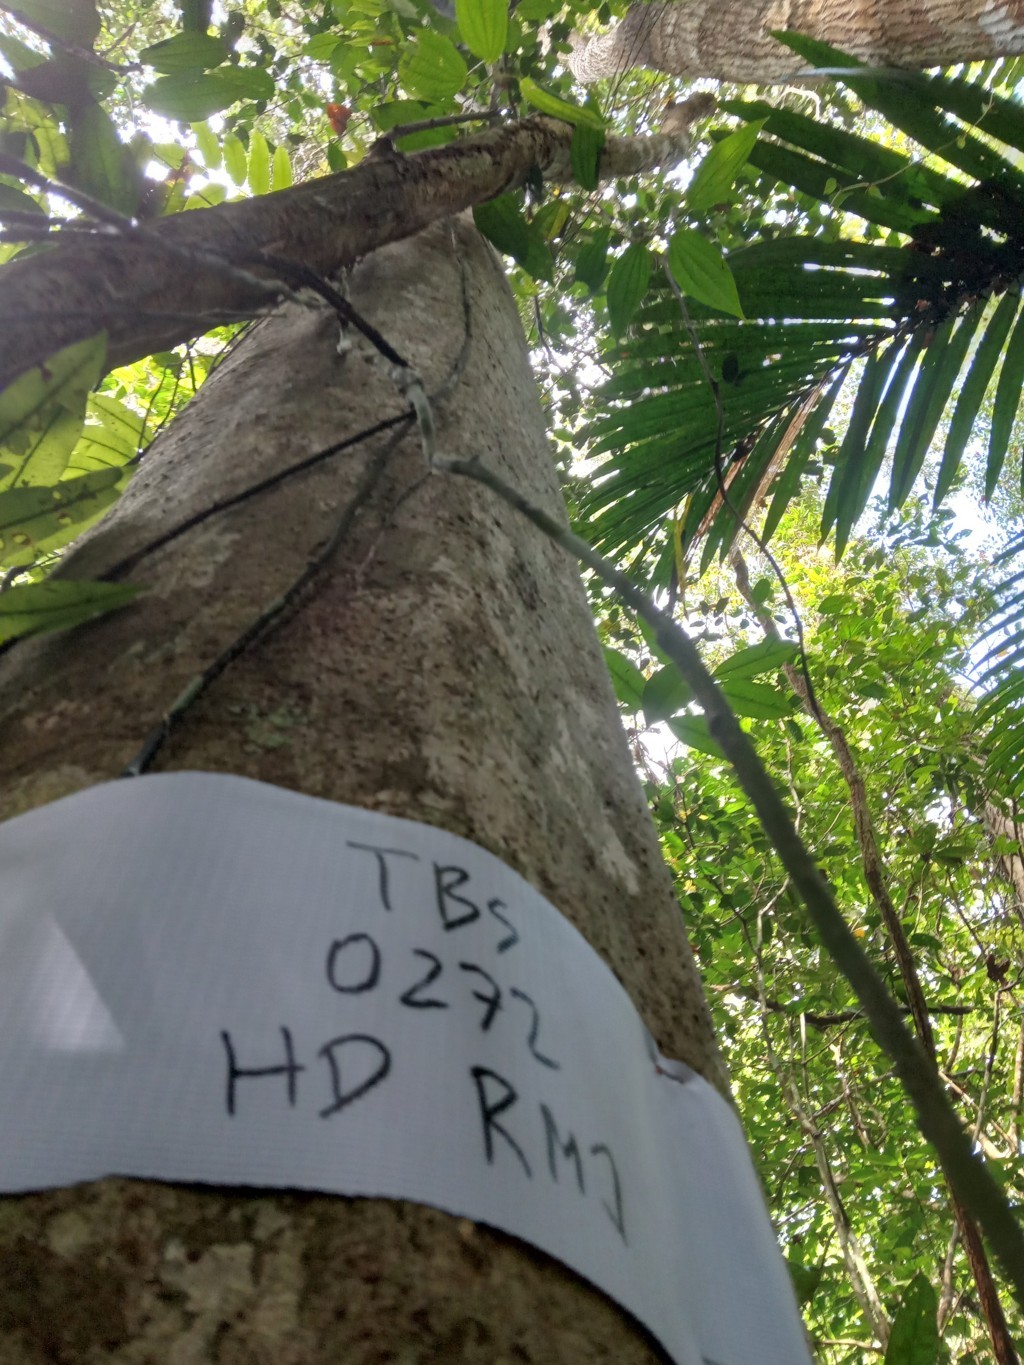 TBS
0272
HD RMJ